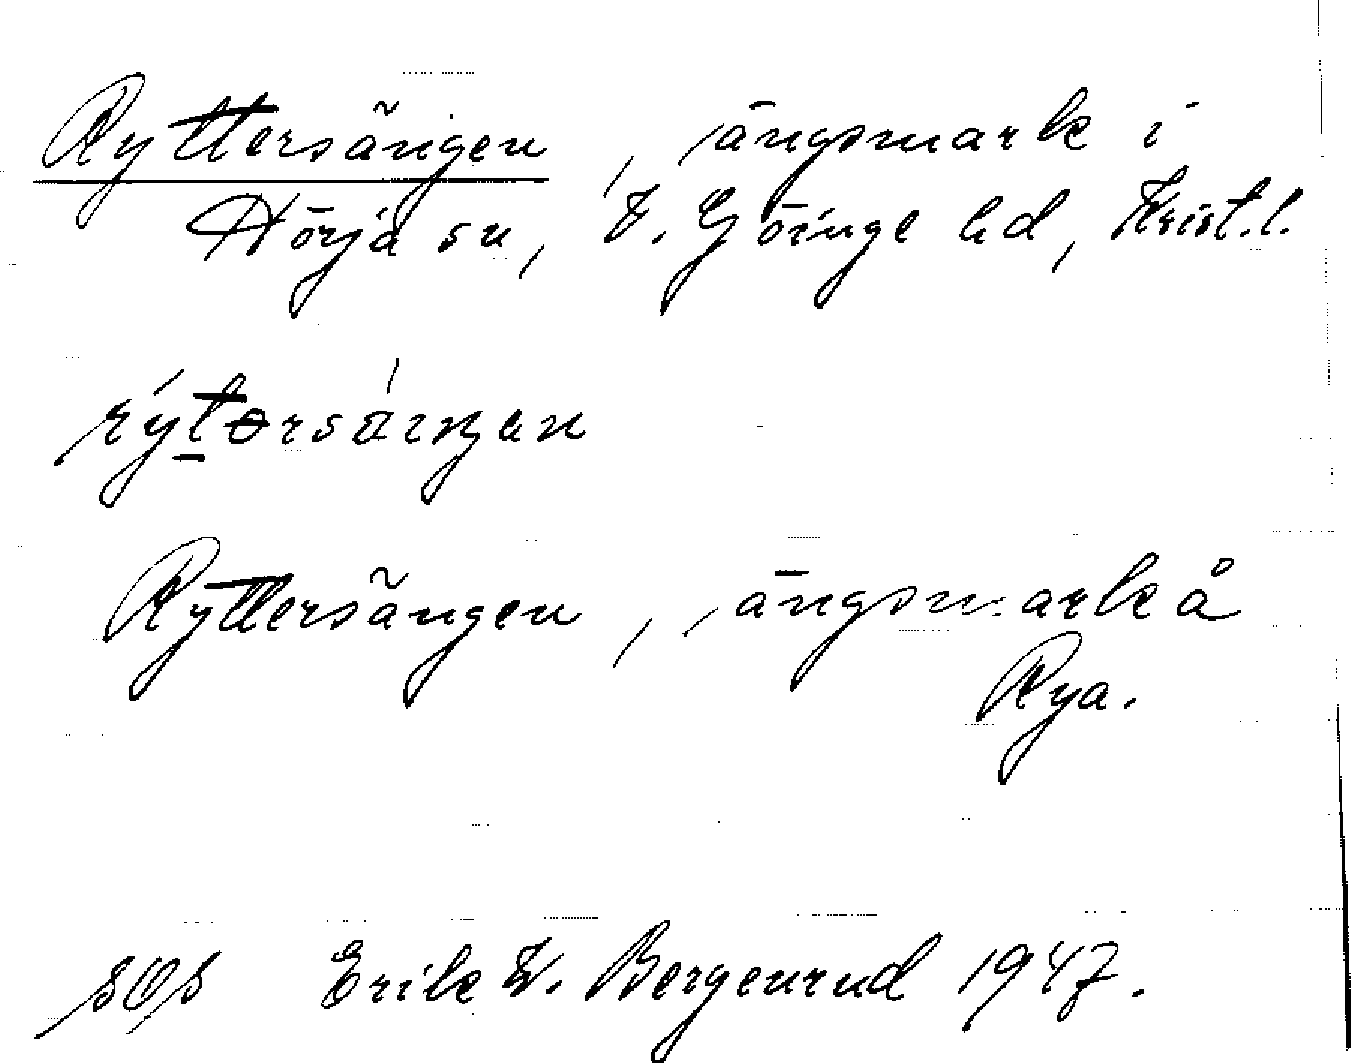 Ryttersängen, ängsmark i
Hörja sn, V. Göinge hd, Krist.l.
Ryttersängen, ängsmark å
Rya.
Erik W. Bergenrud 1947.